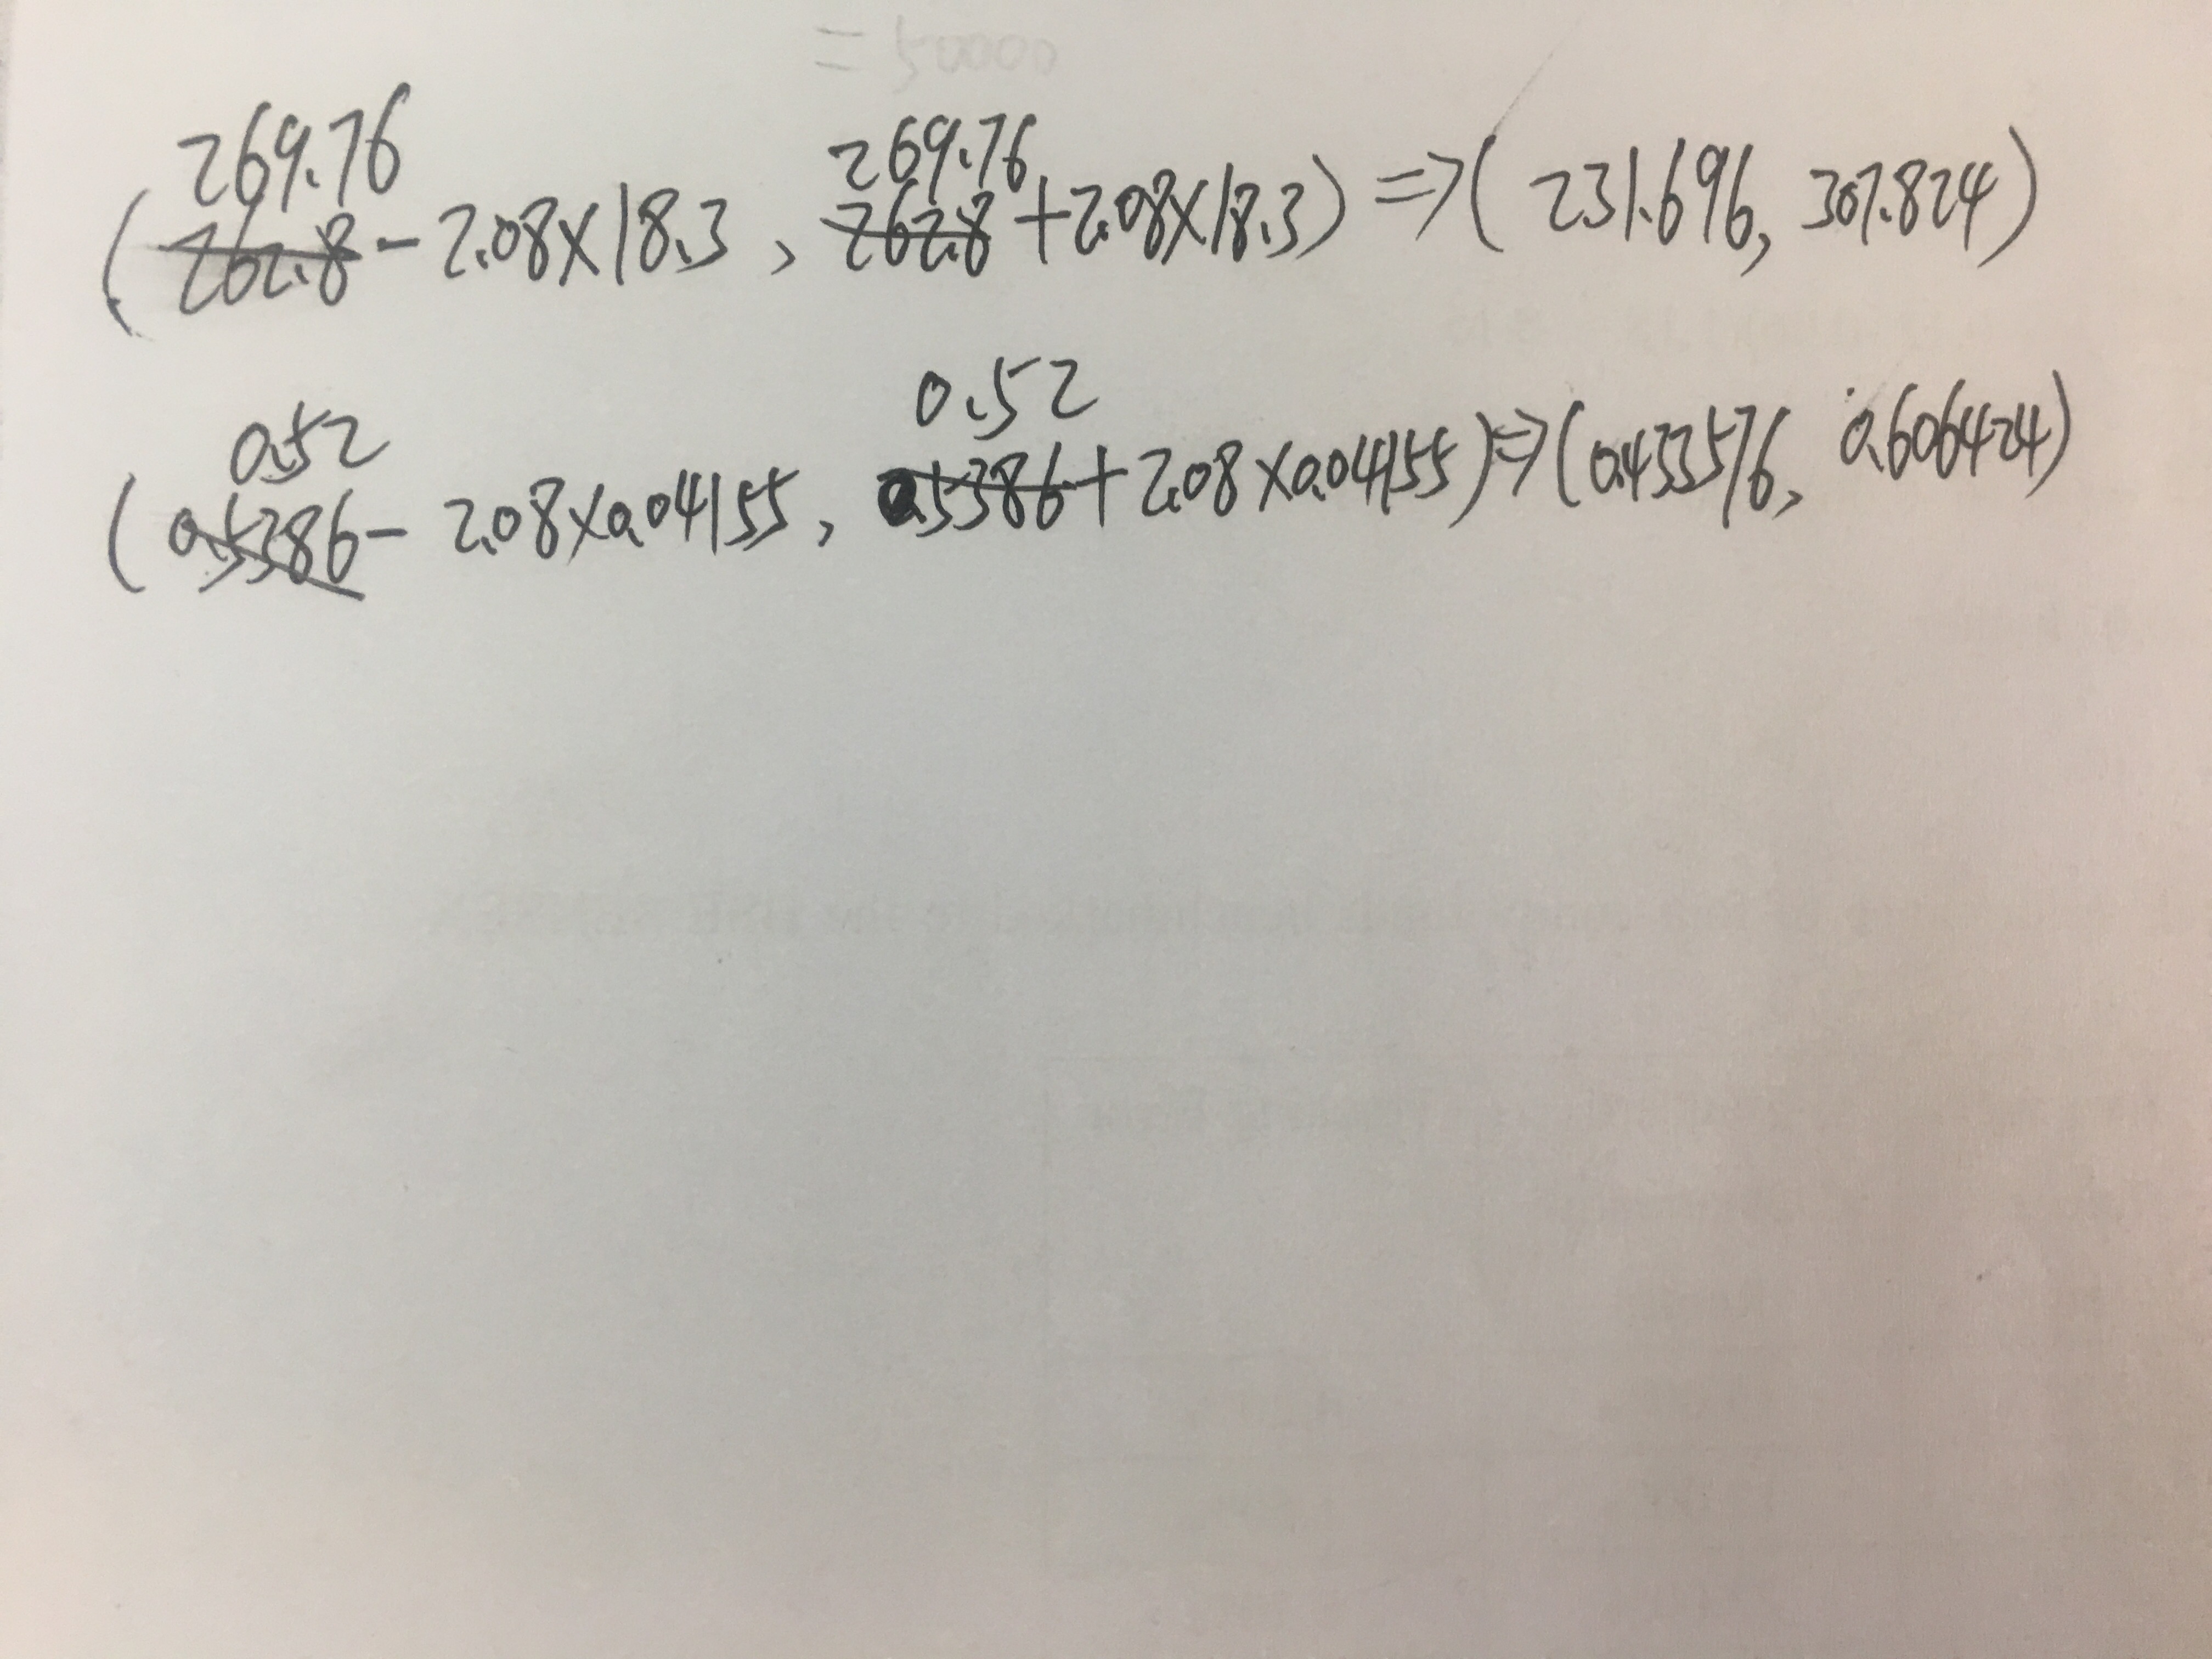 = 50000
269.76 269.76
(262.8 - 2.08×18.3, 262.8 + 2.08×18.3) => (231.696, 307.824)
0.52 0.52
(0.5386 - 2.08×0.04155, 0.5386 + 2.08×0.04155) => (0.433576, 0.606424)